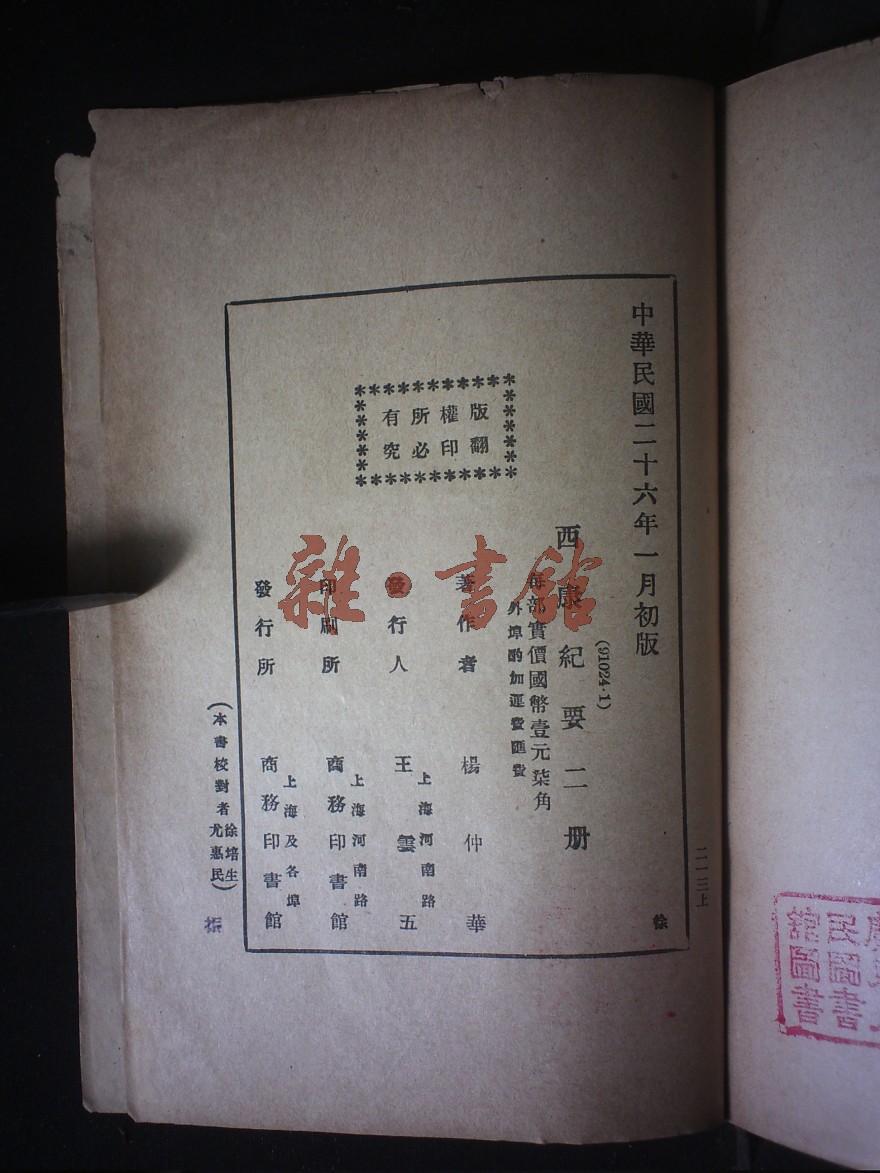 中華民國二十六年一月初版
(91024·1)
西康紀要二册
每部實價國幣壹元柒角
外埠酌加運費匯費
版權所有
翻印必究
著作者 楊仲華
發行人 王雲五
上海河南路
印刷所 商務印書館
上海河南路
發行所 商務印書館
上海及各埠
(本書校對者徐培生尤惠民)
徐
振
二一一三上
雜·書館
民國書
館圖書